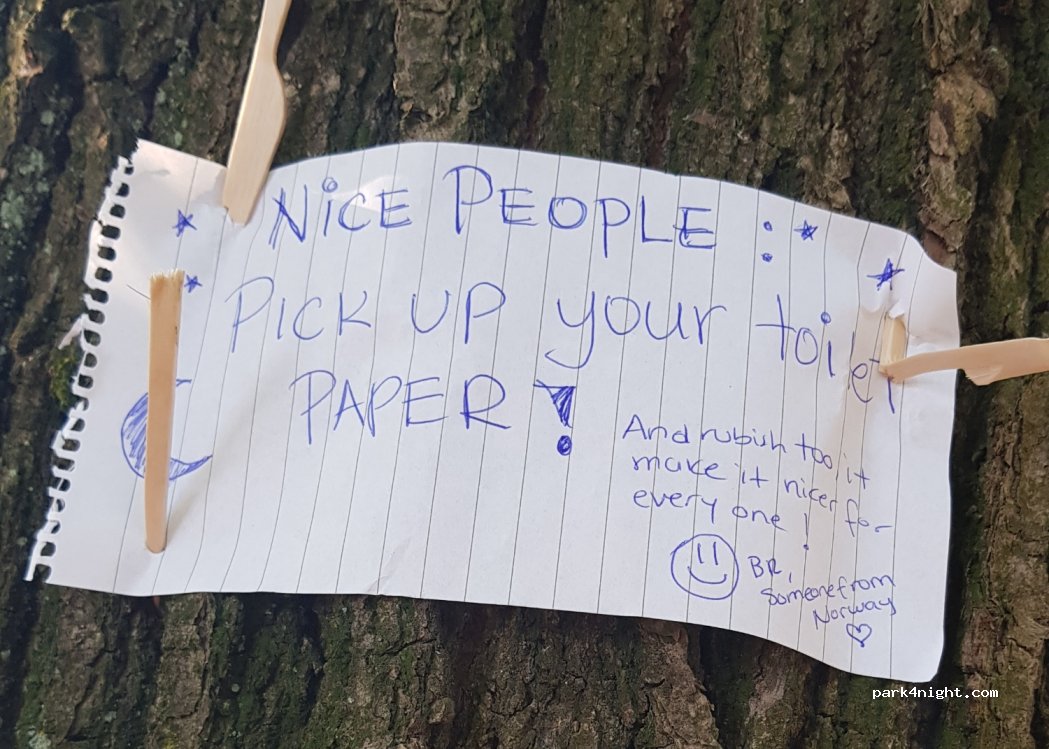 NiCE PEOPLE :
PiCK UP your toilet
PAPER!
And rubish too it
make it nicer for
every one !
BR,
Someone from
Norway
park4night.com